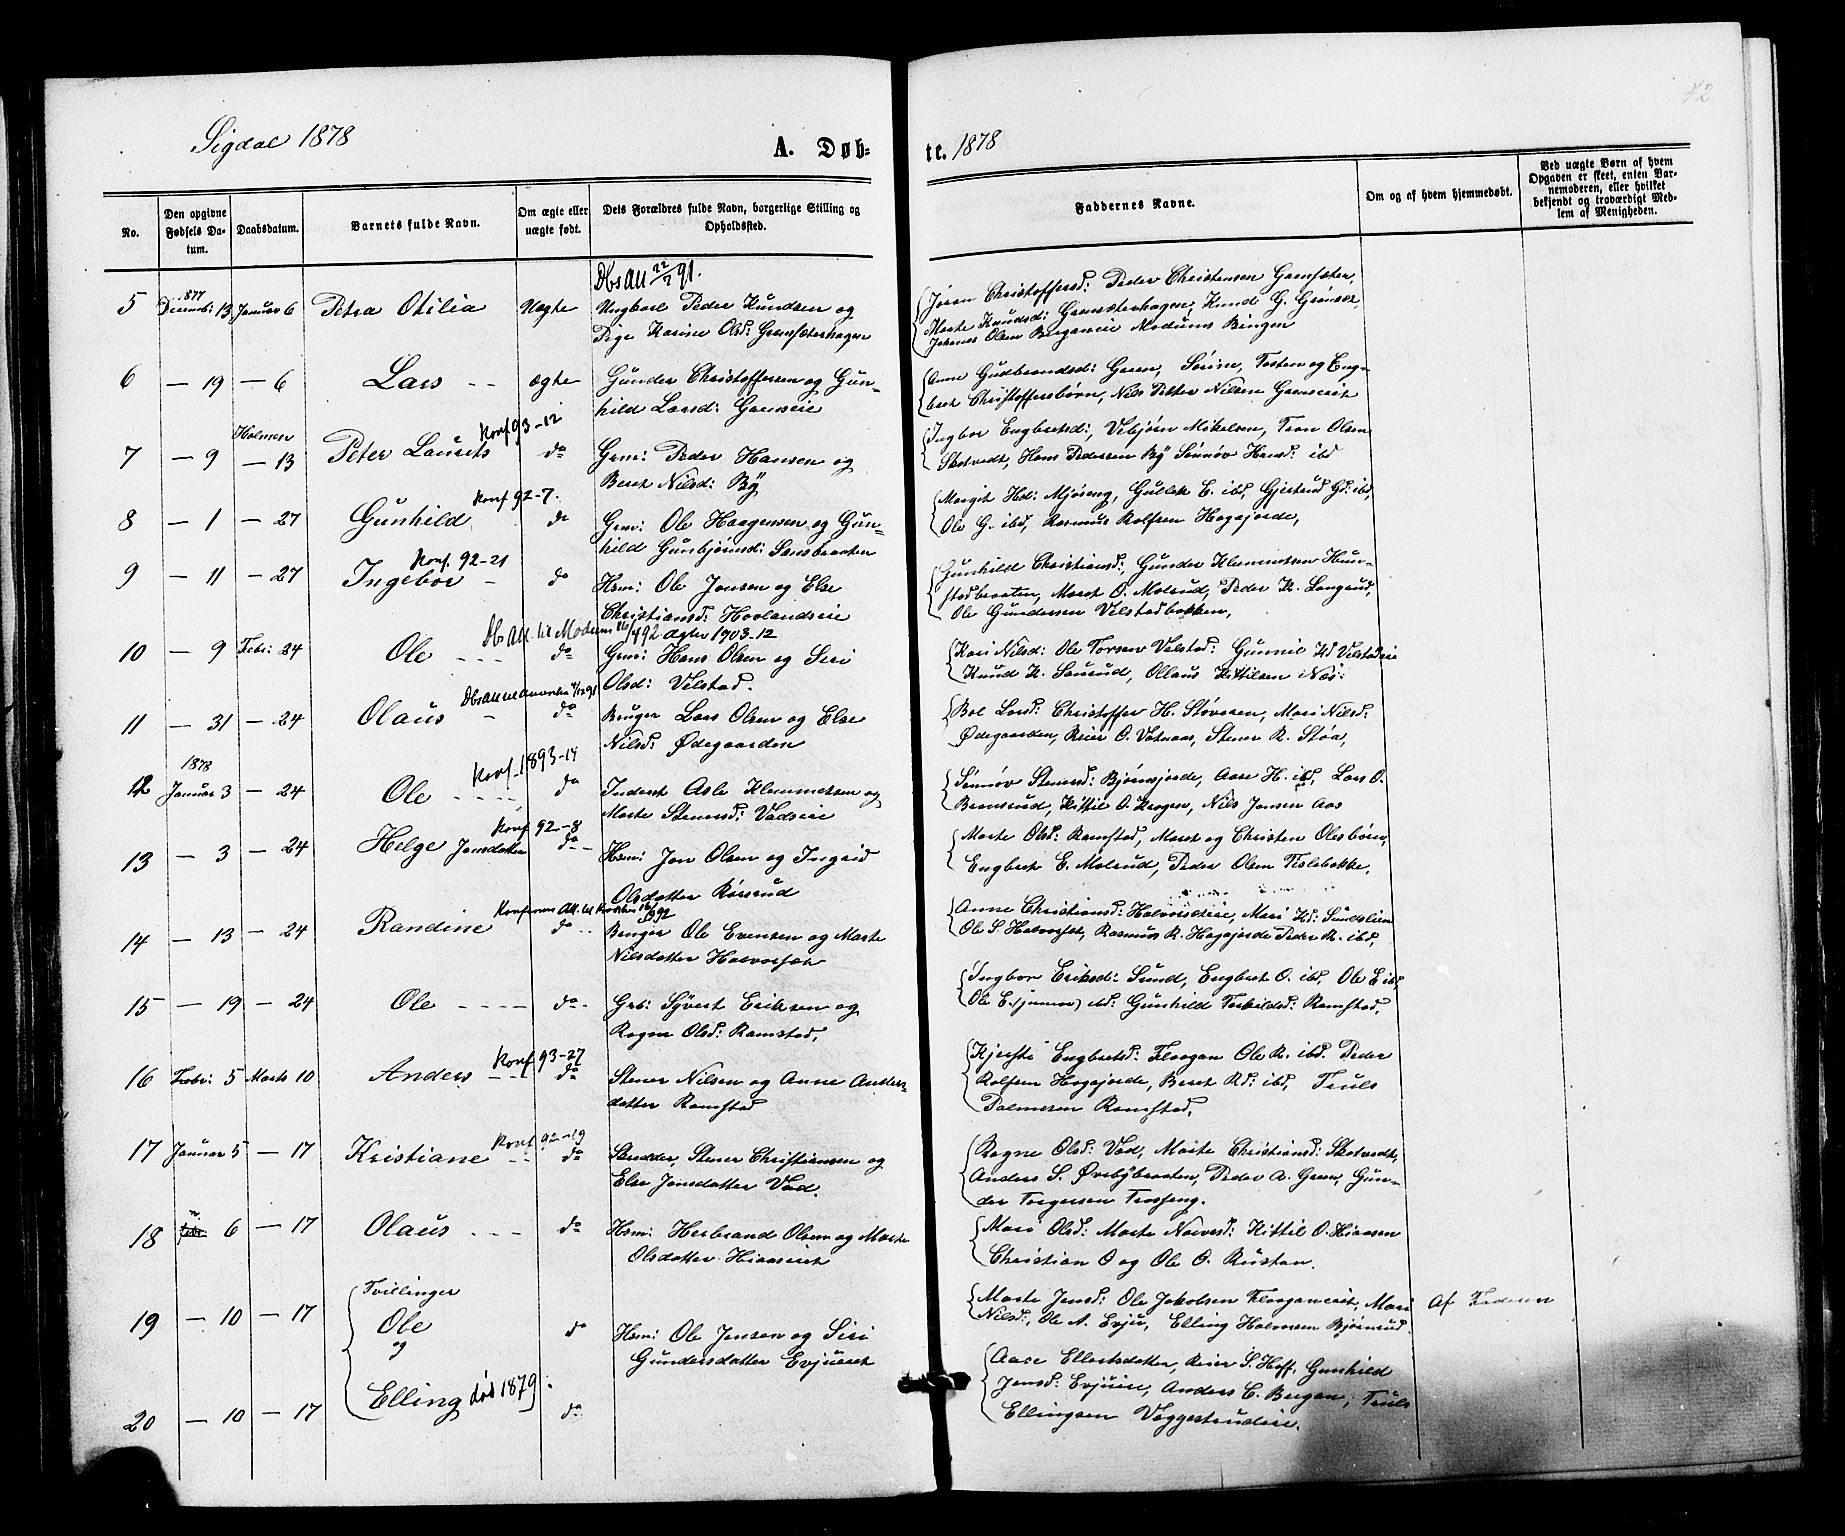 Sigdal 1878
A. Døb-
te. 1878
42
No.
Den opgivne Fødsels Da-tum.
Daabsdatum.
Barnets fulde Navn.
Om ægte eller uægte født.
Dets Forældres fulde Navn, borgerlige Stilling og Opholdssted.
Faddernes Navne.
Om og af hvem hjemmedøbt.
Ved uægte Børn af hvem Opgaven er skeet, enten Bar-nemoderen, eller hvilket bekjendt og troværdigt Med-lem af Menigheden.
1877
5 Decemb: 13 Januar 6 Petra Otilia Uægte Ungkarl Peder Knudsen og
Pige Karine Olsd: Grønsæterhagen
Jøran Christoffersd: Peder Christensen Grønsæter,
Marte Knudsd: Grønsæterhagen, Knud G. Grønset
Johannes Olsen Bergeneie Modums Bingen
6 — 19 — 6 Lars ægte Gunder Christoffersen og Gun-
hild Larsd: Grenseie
Anne Gudbrandsd: Green, Sørine, Torsten og Eng-
bret Christoffersbørn, Nils Petter Nilsen
Konf 93-12
7 — 9 Holmen — 13 Peter Laurits do Grm: Peder Hansen og
Beret Nilsd: By
Ingbor Engbretsd:, Vebjørn Mikelsen, Tron Olsen
Skotvedt, Hans Pedersen By Sønnøv Hansd: ibd
Konf 92-7.
8 — 1 — 27 Gunhild do Grm: Ole Haagensen og Gun-
hild Gunbjørnsd:
Margit Hd: Mjøseng, Gullek E. ibd, Gjertrud Gd: ibd,
Ole G. ibd, Rasmus Rolfsen Hagajorde,
Konf. 92-21
9 — 11 — 27 Ingebor do Hsm: Ole Jonsen og Else
Christiansd: Hovlandseie
Gunhild Christiansd:, Gunder Klemmetsen Hun-
stadbraaten, Marit O. Molrud, Peder K. Langrud,
Ole Gundersen Velstadbakken,
10 — 9 Febr: 24 Ole do Grm: Hans Olsen og Siri
Olsd: Velstad.
Kari Nilsd: Ole Torsen Velstad: Gunnil Kd Velstadeie
Knud K. Saurud, Ollaus Kittilsen Næs.
11 — 31 — 24 Olaus do Bruger Lars Olsen og Else
Nilsd: Ødegaarden
Bol Larsd: Christoffer H. Støvesen, Mari Nilsd:
Ødegaarden, Reier O. Vatnaas, Stener R. Stoa,
1878
Konf. 1893-14
12 Januar 3 — 24 Ole do Inderst Asle Klemmetsen og
Marte Stenersd: Vadseie
Sønnøv Stenersd: Bjørnsjorde, Aase H. ibd, Lars O.
Bramrud, Kittil O. Kragen, Nils Jonsen Aas
Konf 92-8
13 — 3 — 24 Helge Jonsdatter do Hsm: Jon Olsen og Ingrid
Olsdatter Rørrud
Marte Olsd: Ramstad, Marit og Christen Olesbørn,
Engbret E. Molrud, Peder Olsen Tislebakke,
14 — 13 — 24 Randine do Bruger Ole Evensen og Marte
Nilsdatter Halvorset
Anne Christiansd: Halvorseteie, Mari Kd: Sundslien
Ole S. Halvorset, Rasmus R. Hagajorde Peder R. ibd,
15 — 19 — 24 Ole do Grb: Syvert Eriksen og
Ragne Olsd: Ramstad,
Ingbor Eriksd: Sund, Engbret O. ibd, Ole E ibd,
Ole E. (junior) ibd: Gunhild Torkildsd: Ramstad,
Konf 93-27
16 Febr: 5 Marts 10 Anders do Stener Nilsen og Anne Anders-
datter Ramstad
Kjersti Engbretsd: Flaagan Ole R. ibd. Peder
Rolfsen Hagajorde, Beret Rd: ibd, Truls
Palmesen Ramstad,
Konf 92-19
17 Januar 5 — 17 Kristiane do Skrædder, Stener Christiansen og
Else Jonsdatter Vad.
Ragne Olsd: Vad, Marte Christiansd: Skotvedt,
Anders S. Øvrebybraaten, Peder A. Green, Gun-
der Torgersen
18 6 — 17 Olaus do Hsm: Herbrand Olsen og Marte
Olsdatter Hiaaseiet
Mari Olsd: Marte Narvesd: Kittil O. Hiaasen
Christian O og Ole O. Rustan.
Tvillinger
19 — 10 — 17 Ole do Hsm: Ole Jensen og Siri
og
Gundersdatter Evjueiet
Marte Jensd: Ole Jakobsen Flaaganeiet, Mari
Nilsd:, Ole N. Evju, Elling Halvorsen Bjørnrud
Af Faderen
20 — 10 — 17 Elling død 1879. do
Aase Ellertsdatter, Reier S. Hoff, Gunhild
Jensd: Evjueie, Anders C. Bergan, Truls
Ellingsen Vaggestrudeie.